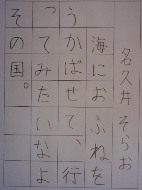 名久井そらお
海におふねを
うかばせて、行
ってみたいなよ
その国。